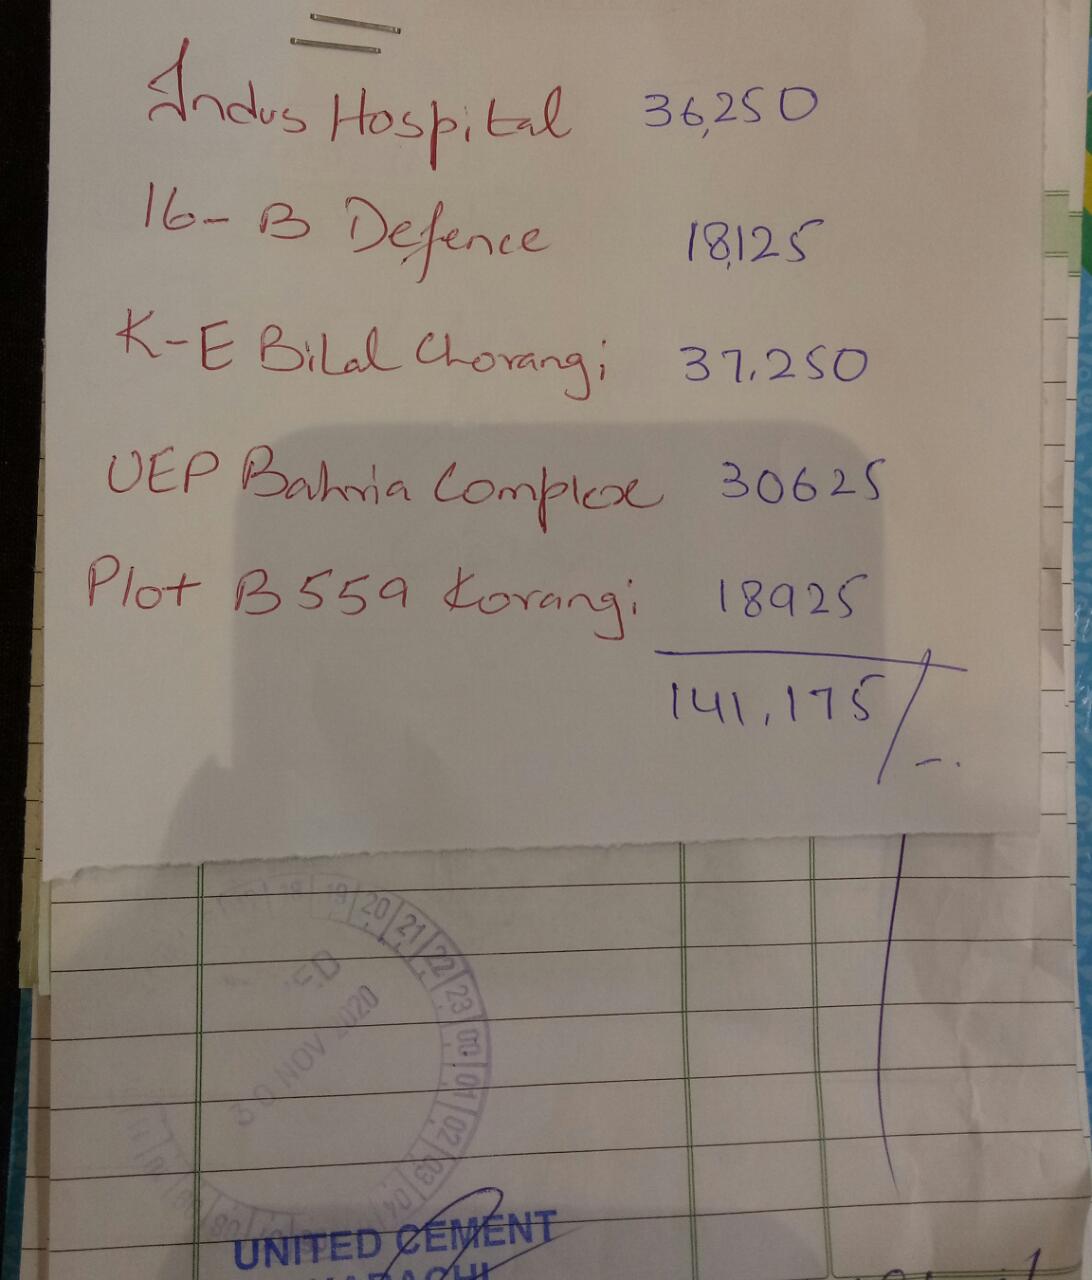 Indus Hospital 36,250
16-B Defence 18,125
K-E Bilal Chorangi 37,250
UEP Bahria Complex 30625
Plot B559 Korangi 18925
141,175/-.
18 19 20 21 22 23 00 01 02 03 04
30 NOV 2020
UNITED CEMENT
KARACHI